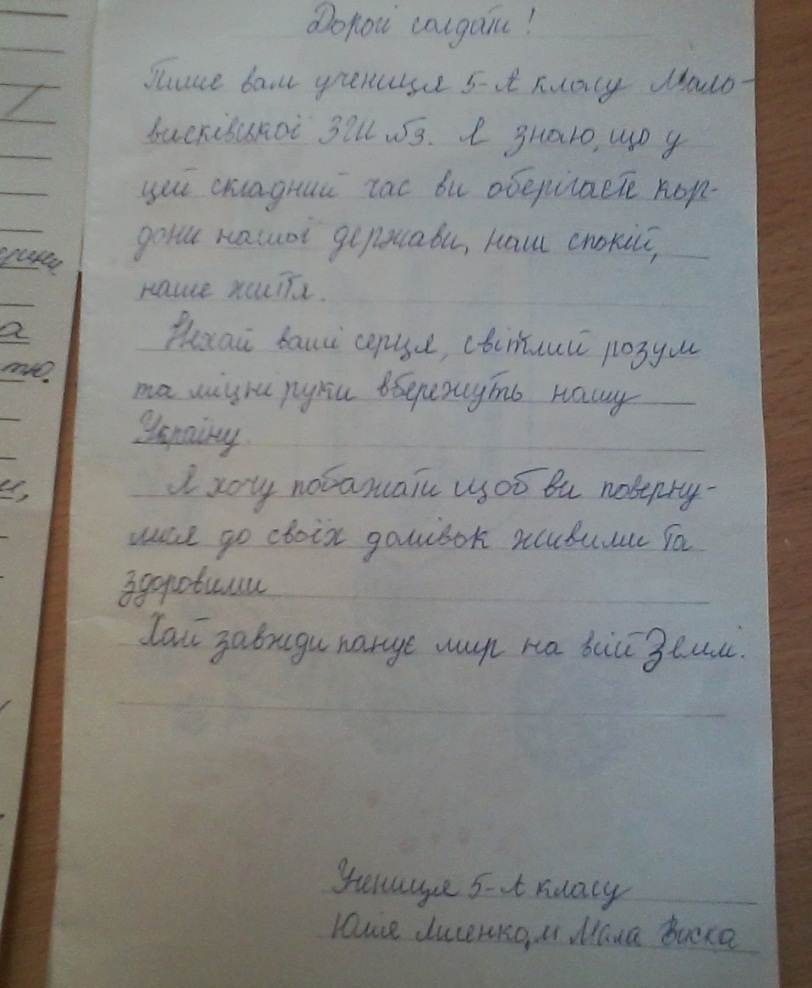 Дорогі солдати!
Пише вам учениця 5-А класу Мало-
висківської ЗШ №3. Я знаю, що у
цей складний час ви оберігаєте кор-
дони нашої держави, наш спокій,
наше життя.
Нехай ваші серця, світлий розум
та міцні руки вбережуть нашу
Україну.
Я хочу побажати щоб ви поверну-
лися до своїх домівок живими та
здоровими
Хай завжди панує мир на всій Землі.
Учениця 5-А класу
Юлія м Мала Виска